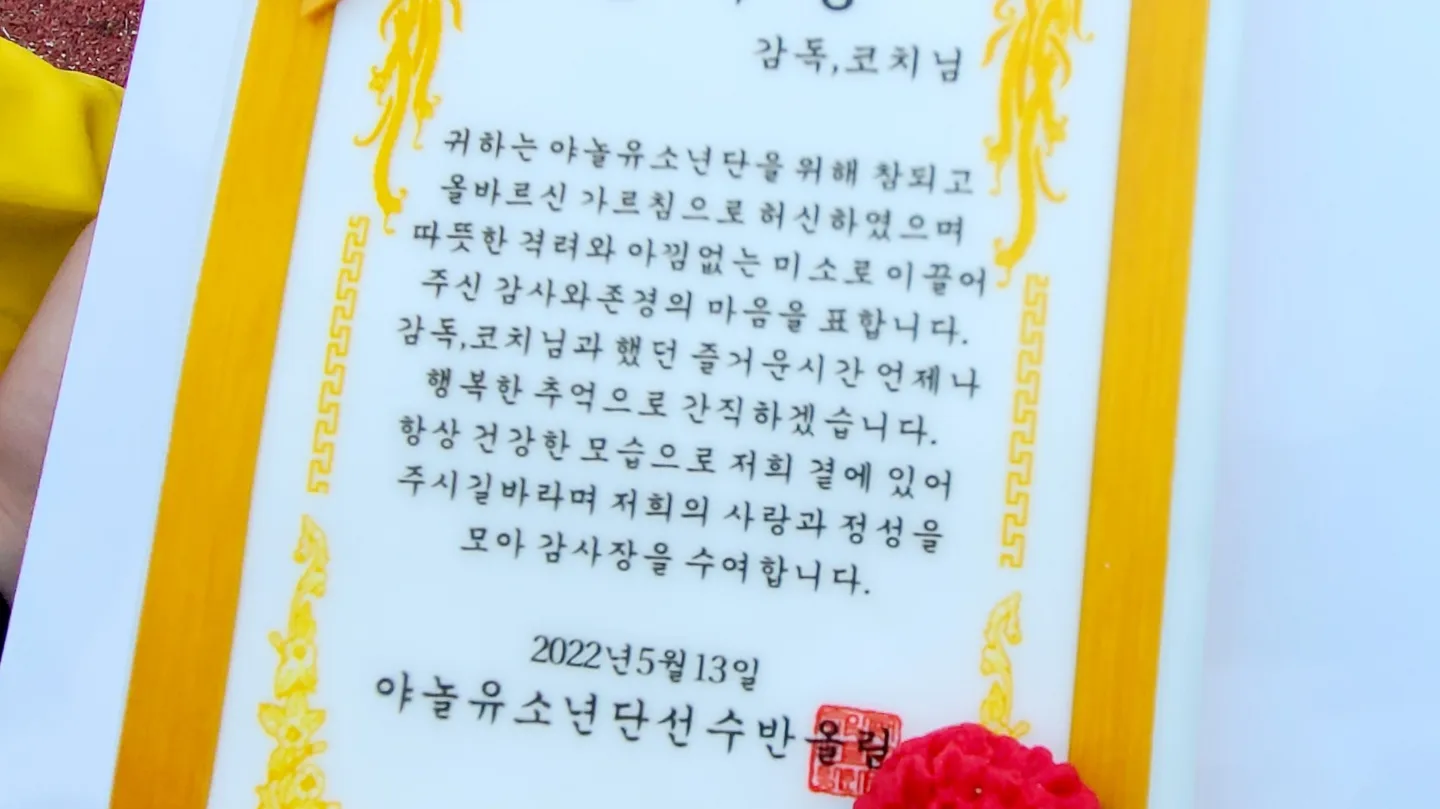 감독,코치님
귀하는 야놀유소년단을 위해 참되고
올바르신 가르침으로 허신하였으며
따뜻한 격려와 아낌없는 미소로 이끌어
주신 감사와존경의 마음을 표합니다.
감독,코치님과 했던 즐거운시간 언제나
행복한 추억으로 간직하겠습니다.
항상 건강한 모습으로 저희 곁에 있어
주시길바라며 저희의 사랑과 정성을
모아 감사장을 수여합니다.
2022년5월13일
야놀유소년단선수반 올림